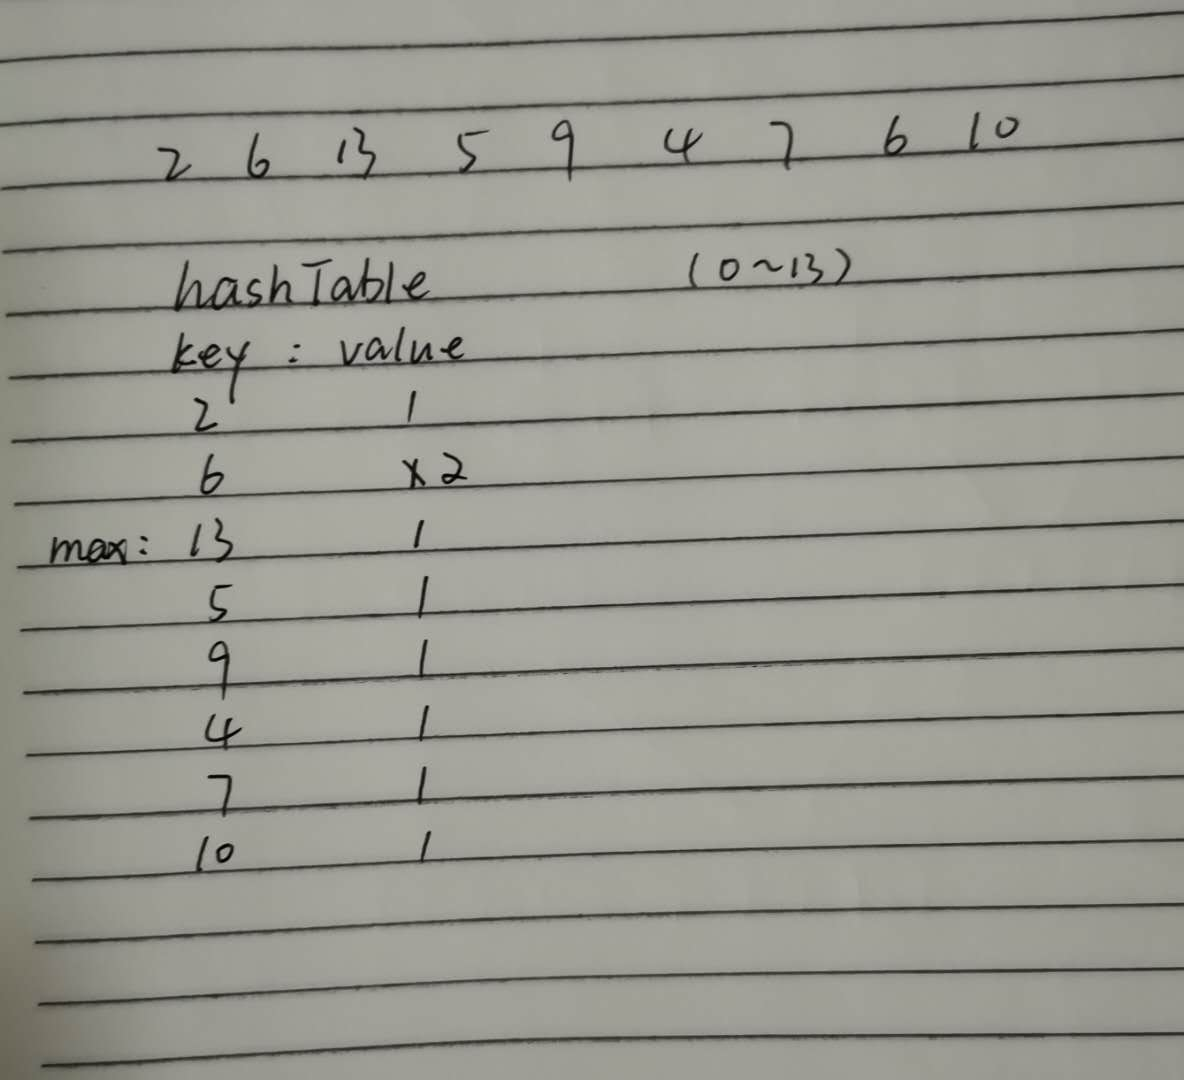 2 6 13 5 9 4 7 6 10
hashTable (0~13)
key : value
2 1
6 2
max: 13 1
5 1
9 1
4 1
7 1
10 1